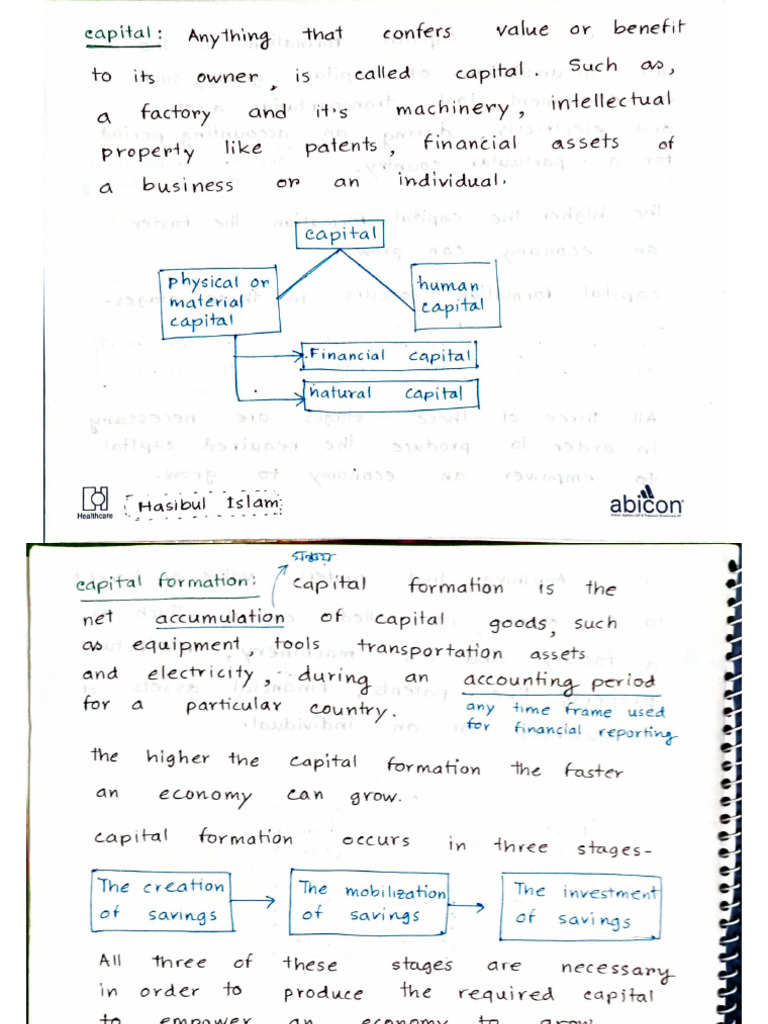 capital: Anything that confers value or benefit
to its owner, is called capital. Such as,
a factory and it's machinery, intellectual
property like patents, financial assets of
a business or an individual.
capital
physical or
material
capital
human
capital
Financial capital
natural capital
Healthcare
Hasibul Islam
abicon
capital formation: capital formation is the
net accumulation of capital goods, such
as equipment, tools transportation assets
and electricity, during an accounting period
for a particular country.
any time frame used
for financial reporting
the higher the capital formation the faster
an economy can grow.
capital formation occurs in three stages-
The creation
of savings
The mobilization
of savings
The investment
of savings
All three of these stages are necessary
in order to produce the required capital
to empower an economy to grow